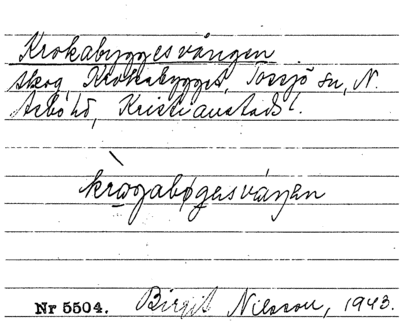 Krokabyggesvången
skog, Krokabygget, Tossjö sn, N.
Åsbo hd, Kristianstads l.
krogabøgesváŋen
Nr 5504. Birgit Nilsson, 1943.